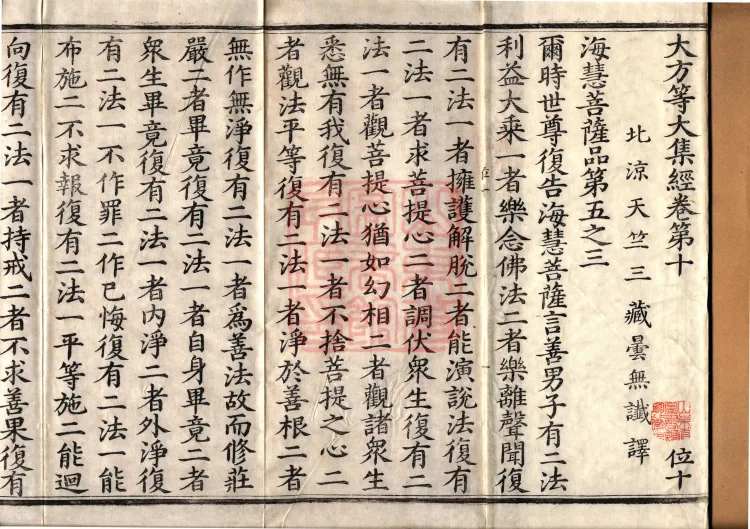 大方等大集經卷第十　位十
北涼天竺三藏曇無讖譯
海慧菩薩品第五之三
爾時世尊復告海慧菩薩言善男子有二法
利益大乘一者樂念佛法二者樂離聲聞復
有二法一者擁護解脫二者能演說法復有
二法一者求菩提心二者調伏衆生復有二
法一者觀菩提心猶如幻相二者觀諸衆生
悉無有我復有二法一者不捨菩提之心二
者觀法平等復有二法一者淨於善根二者
無作無淨復有二法一者爲善法故而修莊
嚴二者畢竟復有二法一者自身畢竟二者
衆生畢竟復有二法一者內淨二者外淨復
有二法一不作罪二作已悔復有二法一能
布施二不求報復有二法一平等施二能迴
向復有二法一者持戒二者不求善果復有